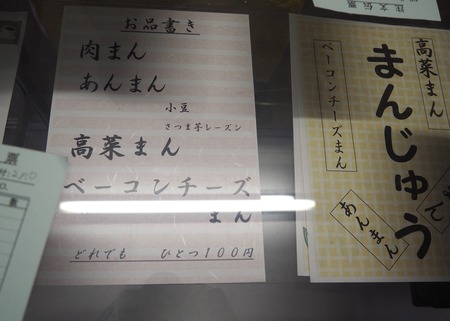 お品書き
肉まん
あんまん
小豆
さつま芋レーズン
高菜まん
ベーコンチーズ
まん
どれでも ひとつ100円
高菜まん
まんじゅう
ベーコンチーズまん
あんまん
票
注文伝票